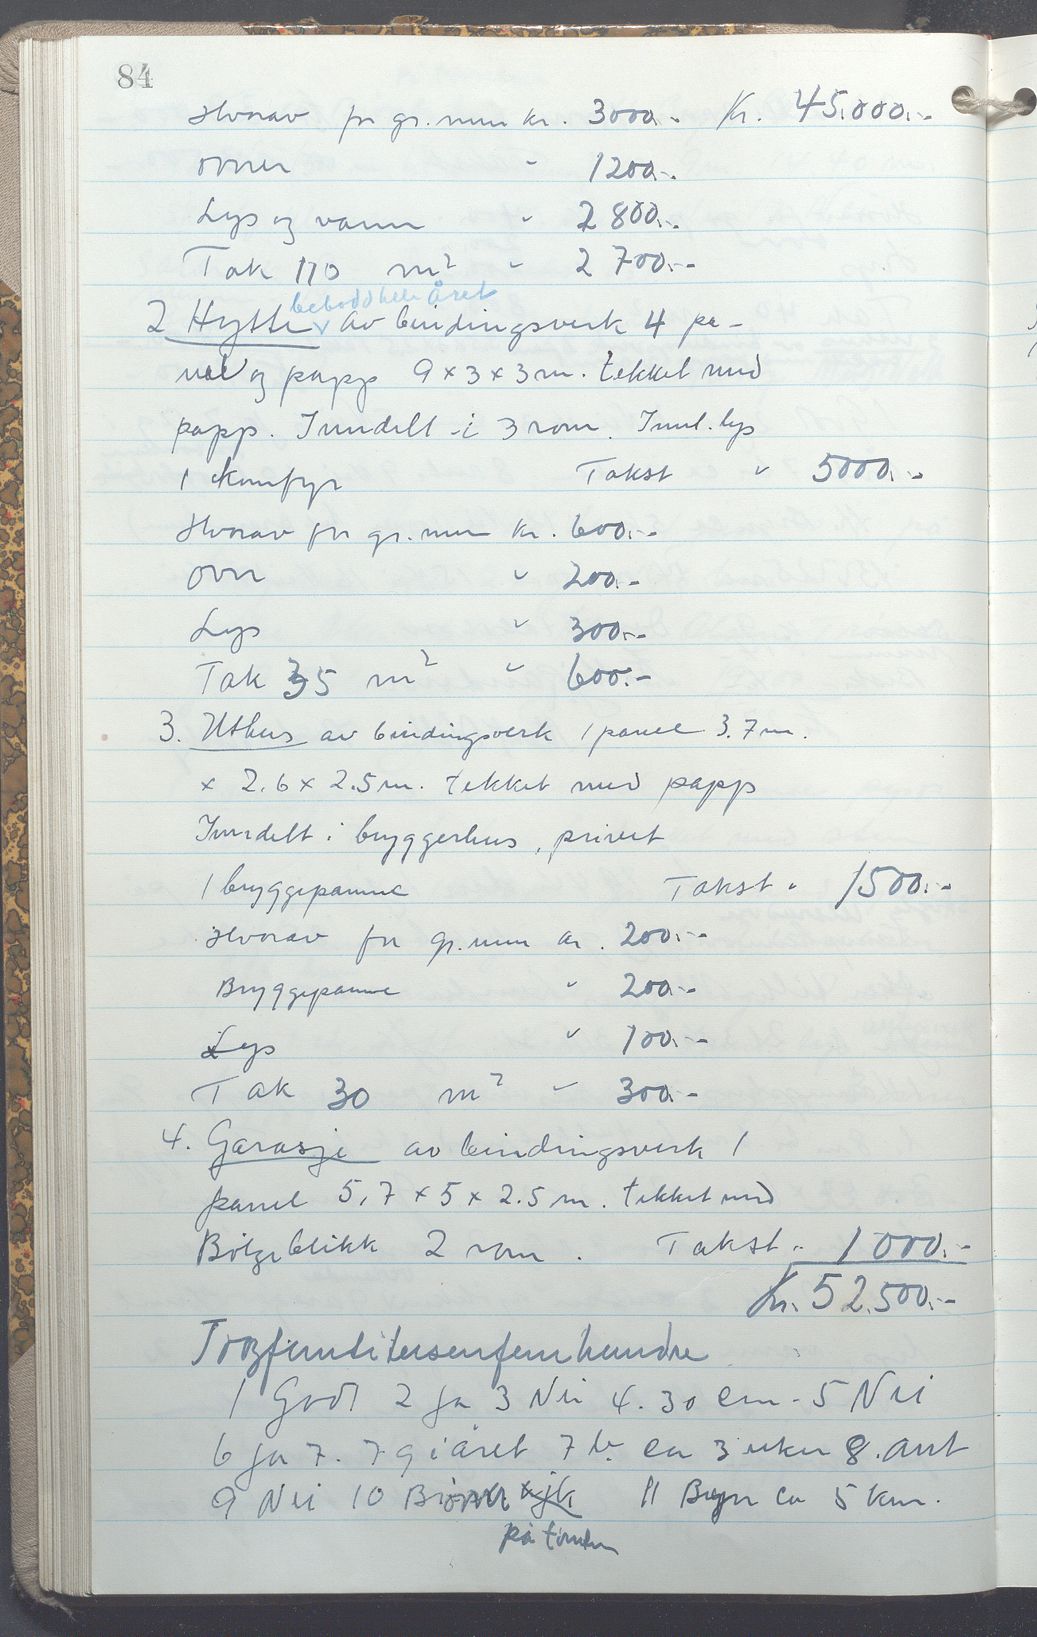 84
Hvorav for gr.mur kr. 3000.- Kr. 45.000.-
ovner " 1200.-
Lys og vann " 2800.-
Tak 110 m² " 2700.-
bebodd hele året
2 Hytte av bindingsverk 4 pa-
nel og papp 9 x 3 x 3 m. tekket med
papp. Inndelt i 3 rom. Innl. lys
1 komfyr Takst " 5000.-
Hvorav for gr.mur kr. 600.-
ovn " 200.-
Lys " 300.-
Tak 35 m² " 600.-
3. Uthus av bindingsverk 1 panel 3.7 m.
x 2.6 x 2.5 m. tekket med papp
Inndelt i bryggerhus, privet
1 bryggepanne Takst " 1500.-
Hvorav for gr.mur kr. 200.-
Bryggepanne " 200.-
Lys " 100.-
Tak 30 m² " 300.-
4. Garasje av bindingsverk 1
panel 5,7 x 5 x 2.5 m. tekket med
Bølgeblikk 2 rom. Takst " 1000.-
Kr. 52.500.-
Toogfemtitusenfemhundre
1 Godt 2 ja 3 Nei 4. 30 cm - 5 Nei
6 ja 7. 7 g i året 7 b. ca 3 uker 8. ant
9 Nei 10 Brønn 11 Byen ca 5 km.
på tomten